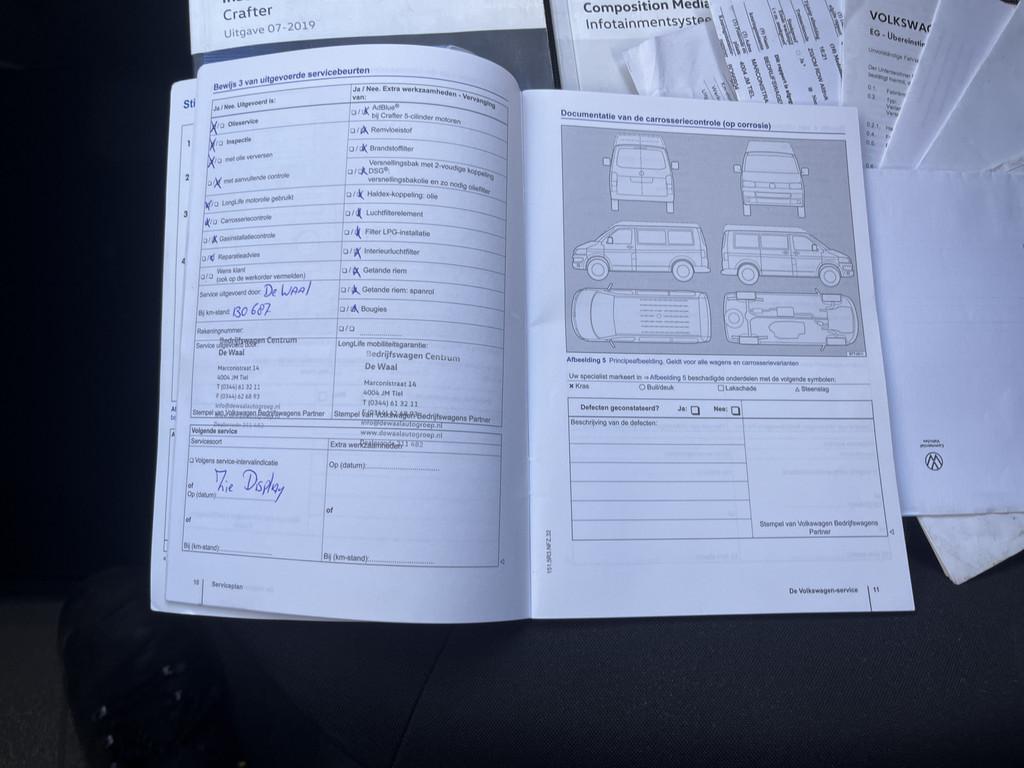 Crafter
Uitgave 07-2019
Composition Media
Infotainmentsysteem
VOLKSWAG
EG - Übereinstim
Bewijs 3 van uitgevoerde servicebeurten
Ja / Nee. Uitgevoerd is:
Olieservice
Inspectie
met olie verversen
met aanvullende controle
LongLife motorolie gebruikt
Carrosseriecontrole
Gasinstallatiecontrole
Reparatieadvies
Wens klant
(ook op de werkorder vermelden)
Service uitgevoerd door: De WAAl
Bij km-stand: 130 687
Rekeningnummer:
Service uitgevoerd door
Bedrijfswagen Centrum
De Waal
Marconistraat 14
4004 JM Tiel
T (0344) 61 32 11
F (0344) 62 68 93
info@dewaalautogroep.nl
Stempel van Volkswagen Bedrijfswagens Partner
Ja / Nee. Extra werkzaamheden - Vervanging
van:
AdBlue®
bij Crafter 5-cilinder motoren
Remvloeistof
Brandstoffilter
Versnellingsbak met 2-voudige koppeling
DSG®:
versnellingsbakolie en zo nodig oliefilter
Haldex-koppeling: olie
Luchtfilterelement
Filter LPG-installatie
Interieurluchtfilter
Getande riem
Getande riem: spanrol
Bougies
LongLife mobiliteitsgarantie:
Bedrijfswagen Centrum
De Waal
Marconistraat 14
4004 JM Tiel
T (0344) 61 32 11
Stempel van Volkswagen Bedrijfswagens Partner
info@dewaalautogroep.nl
www.dewaalautogroep.nl
Volgende service
Servicesoort
Extra werkzaamheden
Volgens service-intervalindicatie
of
Zie Display
Op (datum):
of
Bij (km-stand):
Op (datum):
of
Bij (km-stand):
10 Serviceplan
Documentatie van de carrosseriecontrole (op corrosie)
Afbeelding 5 Principeafbeelding. Geldt voor alle wagens en carrosserievarianten
Uw specialist markeert in ⇒ Afbeelding 5 beschadigde onderdelen met de volgende symbolen:
× Kras ○ Buil/deuk □ Lakschade △ Steenslag
Defecten geconstateerd? Ja: Nee:
Beschrijving van de defecten:
Stempel van Volkswagen Bedrijfswagens
Partner
151.5R3.NFZ.32
De Volkswagen-service 11